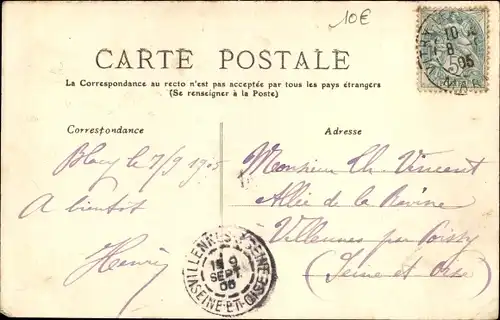 10€
CARTE POSTALE
La Correspondance au recto n'est pas acceptée par tous les pays étrangers
(Se renseigner à la Poste)
Correspondance
Adresse
Blacy le 7/9 1905
A bientôt
Henri
Monsieur Ch. Vincent
Allée de la Ravine
Villennes par Poissy
(Seine et Oise)
VILLENNES-S-SEINE
9
SEPT
05
SEINE-ET-OISE
VITRY
10
8
05
5